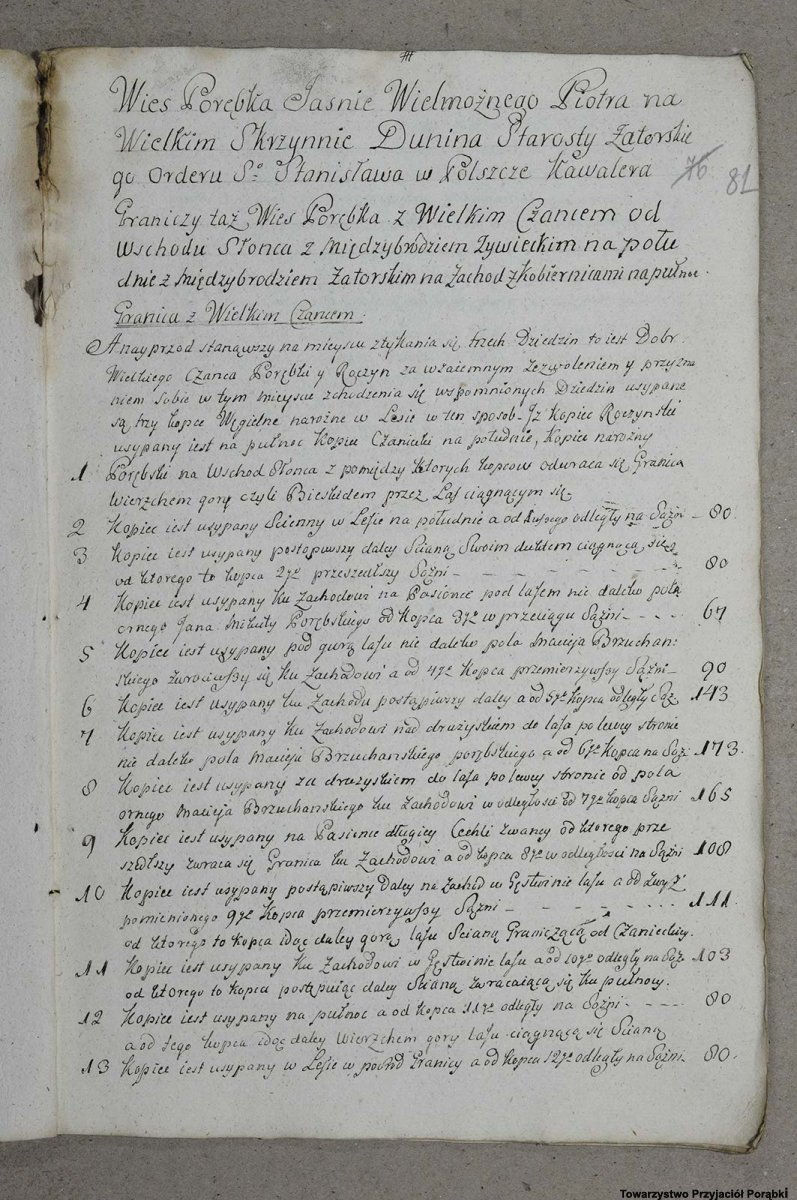 Wies Porębka Jasnie Wielmożnego Piotra na
Wielkim Skrzynnie Dunina Starosty Zatorskie
go Orderu So Stanisława w Polszcze Kawalera
76 81
Graniczy taż Wies Porębka z Wielkim Czańcem od
Wschodu Słońca z Międzybrodziem Zywieckim na połu
dnie z Międzybrodziem Zatorskim na Zachod z Kobiernicami na pułnoc.
Granica z Wielkim Czańcem.
A nayprzod stanąwszy na mieyscu ztykania się trzech Dziedzin to iest Dobr
Wielkiego Czańca Porębki y Roczyn za wzaiemnym zezwoleniem y przyzna
niem sobie w tym mieyscu zchodzenia się wspomnionych Dziedzin usypane
są trzy kopce Węgielne narożne w Lesie w ten sposob. Iż Kopiec Roczynski
usypany iest na pułnoc Kopiec Czaniecki na południe, Kopiec narożny
1 Porębski na Wschod Słońca z pomiędzy ktorych kopcow odwraca się Granica
wierzchem gory czyli Bieskidem przez Las ciągnącym się
2 Kopiec iest usypany Scienny w Lesie na południe a od odległy na Sążni - 80.
3 Kopiec iest usypany postąpiwszy daley Scianą Swoim duktem ciągnącą się
od ktorego to kopca 2go przeszedłszy Sążni - - - - - - 80
4 Kopiec iest usypany ku Zachodowi na Pasionce pod lasem nie daleko pola
ornego Jana Mikuły Porębskiego od Kopca 3go w przeciągu Sążni - - - - 67
5 Kopiec iest usypany pod gurą lasu nie daleko pola Macieja Brzuchań:
skiego zwrociwszy się ku Zachodowi a od 4go Kopca przemierzywszy Sążni - 90
6 Kopiec iest usypany ku Zachodu postąpiwszy daley a od 5go kopca odległy Sąż. 143
7 Kopiec iest usypany ku Zachodowi nad drużyskiem do lasa po lewey stronie
nie daleko pola Macieja Brzuchanskiego porębskiego a od 6go Kopca na Sąż: 173.
8 Kopiec iest usypany za drużyskiem do lasa po lewey stronie od pola
ornego Macieja Brzuchanskiego ku Zachodowi w odległosci od 7go kopca Sążni 165
9 Kopiec iest usypany na Pasionce długiey Cechli zwaney od ktorego prze
szedłszy zwraca się Granica ku Zachodowi a od kopca 8go w odległosci na Sążni 108
10 Kopiec iest usypany postąpiwszy Daley na Zachod w Gęstwinie lasu a od zwyż
pomienionego 9go Kopca przemierzywszy Sążni - - - - - - 111.
od ktorego to kopca idąc daley gorą lasu Scianą Graniczącą od Czaniecкiey.
11 Kopiec iest usypany ku Zachodowi w Gęstwinie lasu a od 10go odległy na Sąż. 103
od ktorego to kopca postępuiąc daley Scianą zwracaiącą się ku pułnocy.
12 Kopiec iest usypany na pułnoc a od kopca 11go odległy na Sążni - - - - 80
a od tego kopca idąc daley Wierzchem gory lasu ciągnącą się Scianą
13 Kopiec iest usypany w Lesie w posrod Granicy a od kopca 12go odległy na Sążni - 80.
Towarzystwo Przyjaciół Porąbki